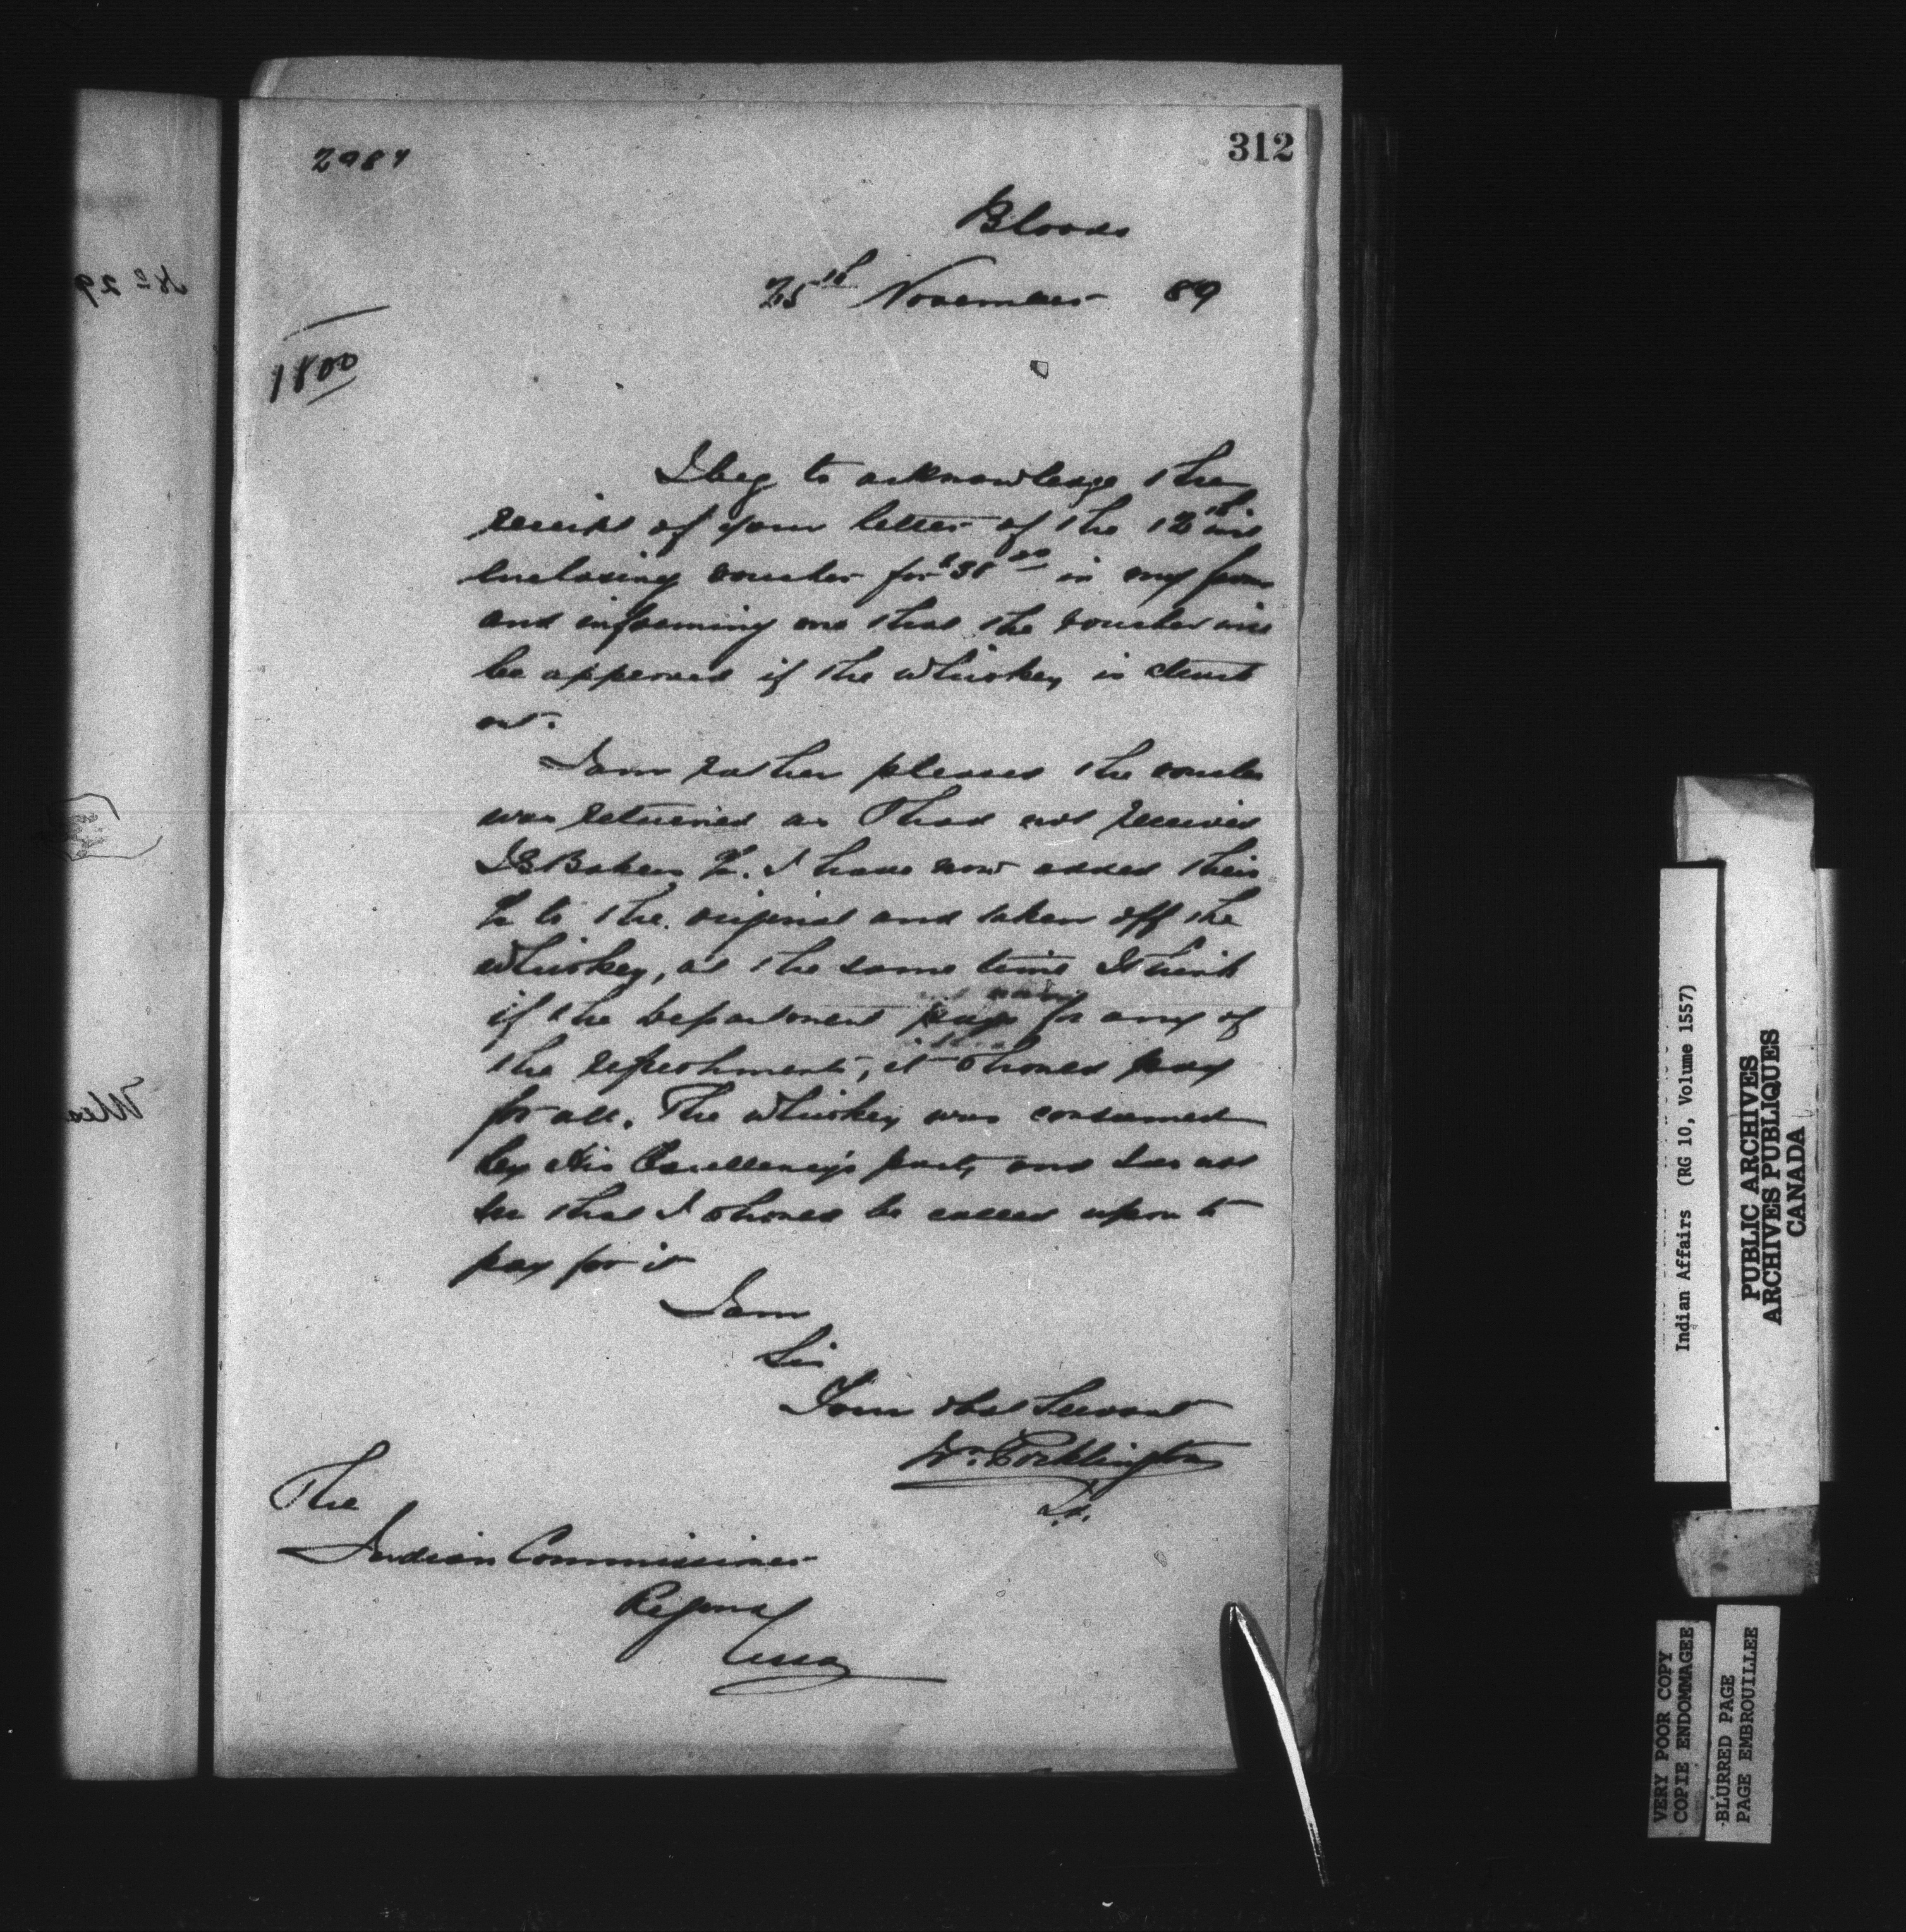 312
2987
Bloods
25th November 89
1800
I beg to acknowledge the
receipt of your letter of the 12th inst
enclosing voucher for $38 00 in my favor
and informing me that the voucher will
be approved if the whiskey is struck
out.
I am rather pleased the voucher
was returned as I had not received
I G Bakers %. I have now added their
% to the original and taken off the
whiskey, at the same time I think
if the Department pays for any of
the refreshments, it should pay
for all. The whiskey was consumed
by His Excellency's party and I do not
see that I should be called upon to
pay for it
I am
Sir
Your obed Servant
Wm. Pocklington
The
Indian Commissioner
Regina
Assa
No 29
Indian Affairs (RG 10, Volume 1557)
PUBLIC ARCHIVES
ARCHIVES PUBLIQUES
CANADA
VERY POOR COPY
COPIE ENDOMMAGEE
BLURRED PAGE
PAGE EMBROUILLEE